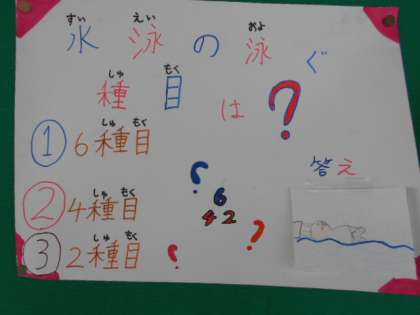 すい えい およ
水泳の泳ぐ
しゅ もく
種目は?
しゅ もく
① 6種目
しゅ もく
② 4種目
しゅ もく
③ 2種目
?
6
4 2
? ?
答え